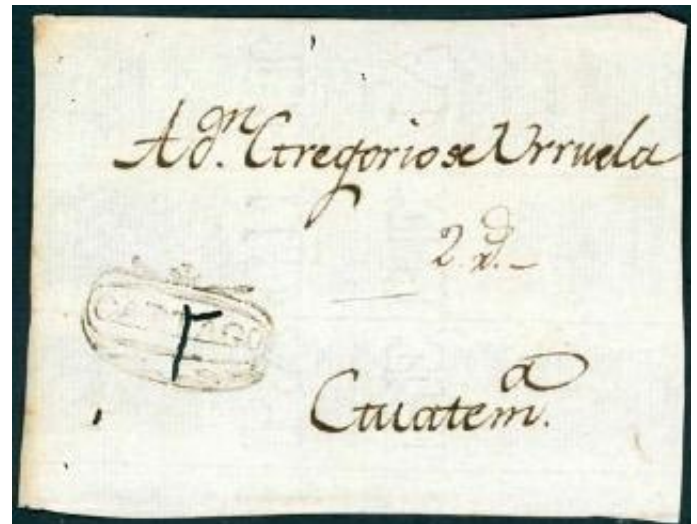 A dn. Gregorio de Urruela
2. d. -
CARTAGO
Guatema.